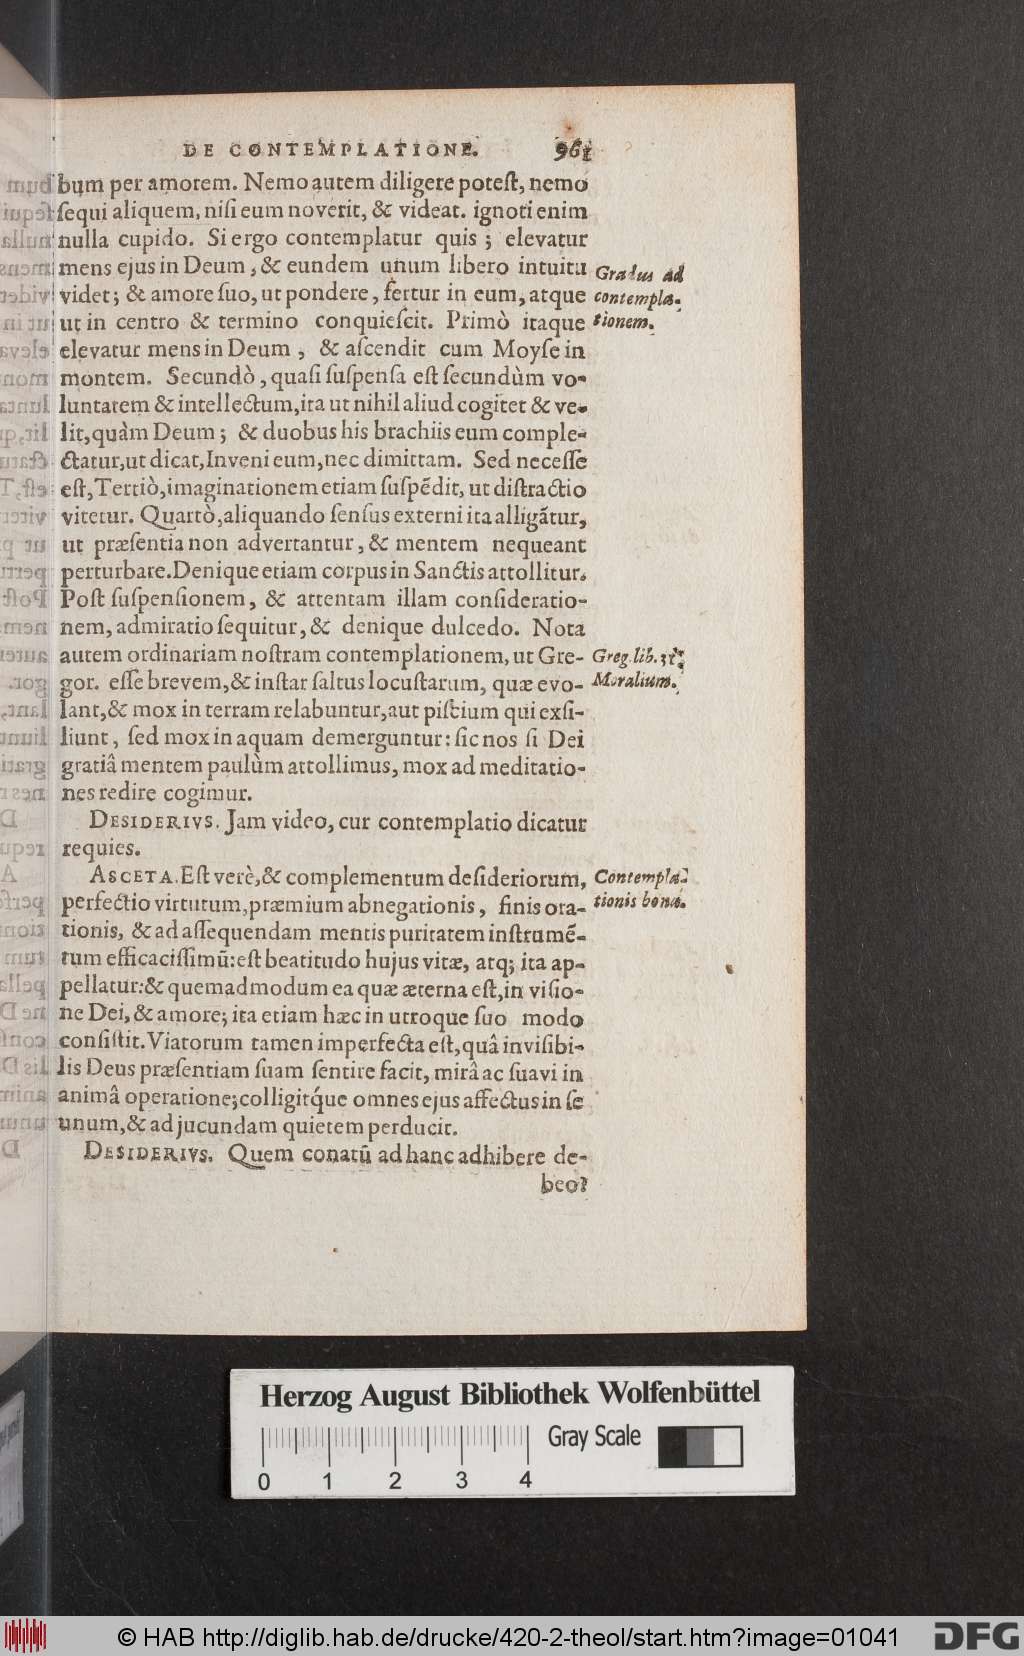 DE CONTEMPLATIONE. 961
bum per amorem. Nemo autem diligere potest, nemo
sequi aliquem, nisi eum noverit, & videat. ignoti enim
nulla cupido. Si ergo contemplatur quis ; elevatur
mens ejus in Deum, & eundem unum libero intuitu
Gradus ad
videt; & amore suo, ut pondere, fertur in eum, atque
contempla-
ut in centro & termino conquiescit. Primò itaque
tionem.
elevatur mens in Deum , & ascendit cum Moyse in
montem. Secundò, quasi suspensa est secundùm vo-
luntatem & intellectum, ita ut nihil aliud cogitet & ve-
lit, quàm Deum; & duobus his brachiis eum comple-
ctatur, ut dicat, Inveni eum, nec dimittam. Sed necesse
est, Tertiò, imaginationem etiam suspẽdit, ut distractio
vitetur. Quartò, aliquando sensus externi ita alligãtur,
ut præsentia non advertantur, & mentem nequeant
perturbare. Denique etiam corpus in Sanctis attollitur.
Post suspensionem, & attentam illam consideratio-
nem, admiratio sequitur, & denique dulcedo. Nota
autem ordinariam nostram contemplationem, ut Gre-
Greg. lib.
gor. esse brevem, & instar saltus locustarum, quæ evo-
Moralium.
lant, & mox in terram relabuntur, aut piscium qui exsi-
liunt, sed mox in aquam demerguntur: sic nos si Dei
gratiâ mentem paulùm attollimus, mox ad meditatio-
nes redire cogimur.
DESIDERIVS. Jam video, cur contemplatio dicatur
requies.
ASCETA. Est verè, & complementum desideriorum,
Contempla-
perfectio virtutum, præmium abnegationis, finis ora-
tionis bona.
tionis, & ad assequendam mentis puritatem instrumẽ-
tum efficacissimũ: est beatitudo hujus vitæ, atq; ita ap-
pellatur: & quemadmodum ea quæ æterna est, in visio-
ne Dei, & amore; ita etiam hæc in utroque suo modo
consistit. Viatorum tamen imperfecta est, quâ invisibi-
lis Deus præsentiam suam sentire facit, mirâ ac suavi in
animâ operatione; colligitq́ue omnes ejus affectus in se
unum, & ad jucundam quietem perducit.
DESIDERIVS. Quem conatũ ad hanc adhibere de-
beo?
Herzog August Bibliothek Wolfenbüttel
Gray Scale
0 1 2 3 4
© HAB http://diglib.hab.de/drucke/420-2-theol/start.htm?image=01041
DFG